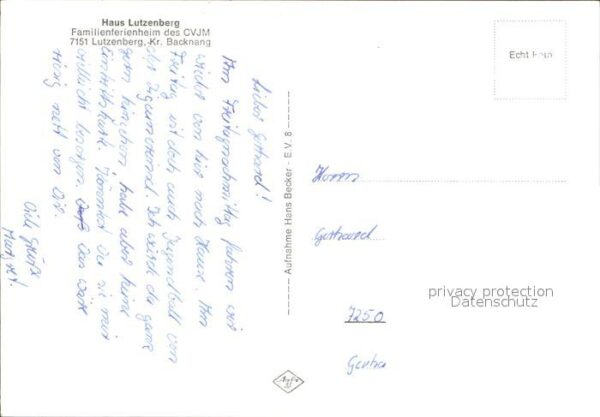 Haus Lutzenberg
Familienferienheim des CVJM
7151 Lutzenberg, Kr. Backnang
Lieber Gerhard!
Am Freitagnachmittag fahren wir
wieder von hier nach Hause. Am
Freitag ist doch auch Jugendball von
der Ich würde da ganz
gern hingehen, habe aber keine
Eintrittskarte. Könntest Du sie mir
vielleicht besorgen. Das wäre
riesig nett von Dir.
Viele Grüße
Aufnahme Hans Becker - E.V. 8
Echt Foto
Herrn
Gerhard
7250
privacy protection
Datenschutz
Agfa